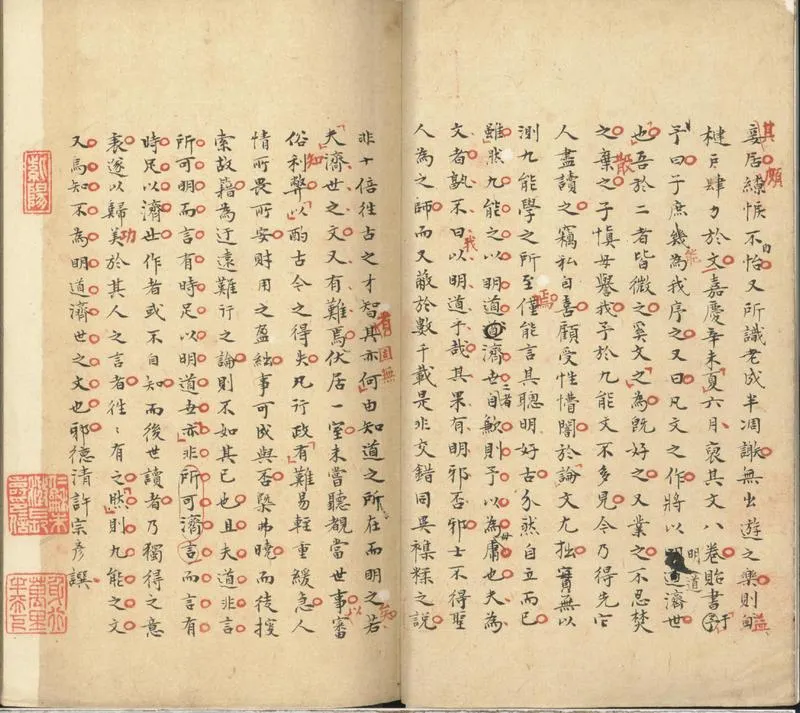 窶居繚悷不怡又所識老成半凋謝無出遊之樂則自
楗戶肆力於文嘉慶辛未夏六月裒其文八卷貽書於
予曰子庶幾為我序之又曰凡文之作將以明道濟世
也吾於二者皆微之奚文之為既好之又業之不忍焚
之棄之子慎毋譽我予於九能文不多見今乃得先它
人盡讀之竊私自喜顧受性懵闇於論文尤拙實無以
測九能學之所至僅能言其聰明好古介然自立而已
雖然九能之以明道濟世自歉則予以為庸也夫為
文者孰不曰以明道予哉其果有明邪否邪士不得聖
人為之師而又蔽於數千載是非交錯同異襍糅之說
非十倍往古之才智其亦何由知道之所在而明之若
夫濟世之文又有難焉伏居一室未嘗聽覩當世事審
俗利弊以酌古今之得失凡行政有難易輕重緩急人
情所畏所安財用之盈絀事可成與否槩弗曉而徒搜
索故籍為迂遠難行之論則不如其已也且夫道非言
所可明而言有時足以明道吾亦非所可濟言而言有
時足以濟世作者或不自知而後世讀者乃獨得之意
表遂以歸美於其人之言者往往有之然則九能之文
又焉知不為明道濟世之文也邪德清許宗彥譔
其 願
益
散
焉
我
二者
明道
有 固無
知
功
以
紫陽